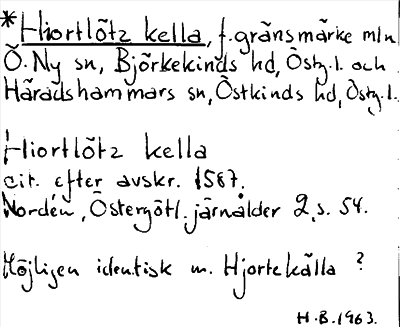 *Hiortlötz kella, f. gränsmärke mln
Ö. Ny sn, Björkekinds hd, Östg.l. och
Häradshammars sn, Östkinds hd, Östg.l.
Hiortlötz kella
cit. efter avskr. 1587.
Nordén, Östergötl. järnålder 2, s. 54.
Möjligen identisk m. Hjortekälla?
H.B. 1963.